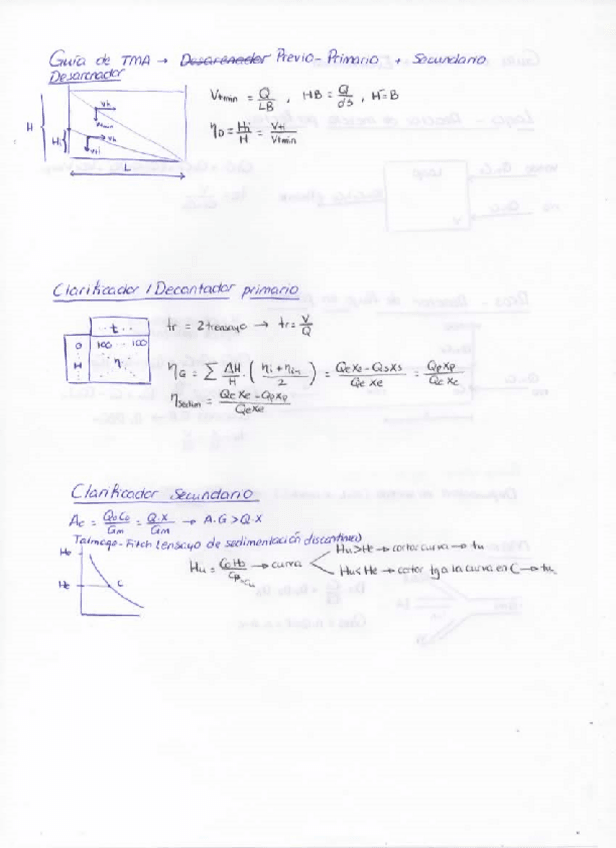 Guía de TMA → Desarenador Previo-Primario + Secundario
Desarenador
Vtmin = Q/LB , HB = Q/ds , H=B
H Hi Vh Vtmin Vh Vti L
ηD = Hi/H = Vti/Vtmin
Clarificador / Decantador primario
.. t ..
0 100 ... 100
H η
tr = 2 trensayo → tr = V/Q
ηG = Σ ΔH/H · (ηi + ηi+1 / 2) = QeXe - QsXs / QeXe = QpXp / QeXe
ηsedim = QeXe - QpXp / QeXe
Clarificador Secundario
Ac = QoCo/Gm = Q·X/Gm → A·G > Q·X
Talmage-Fitch (ensayo de sedimentación discontinua)
Ho
Hc C
Hu = CoHo/Cu → curva
Hu > Hc → cortar curva → tu
Hu < Hc → cortar tg a la curva en C → tu